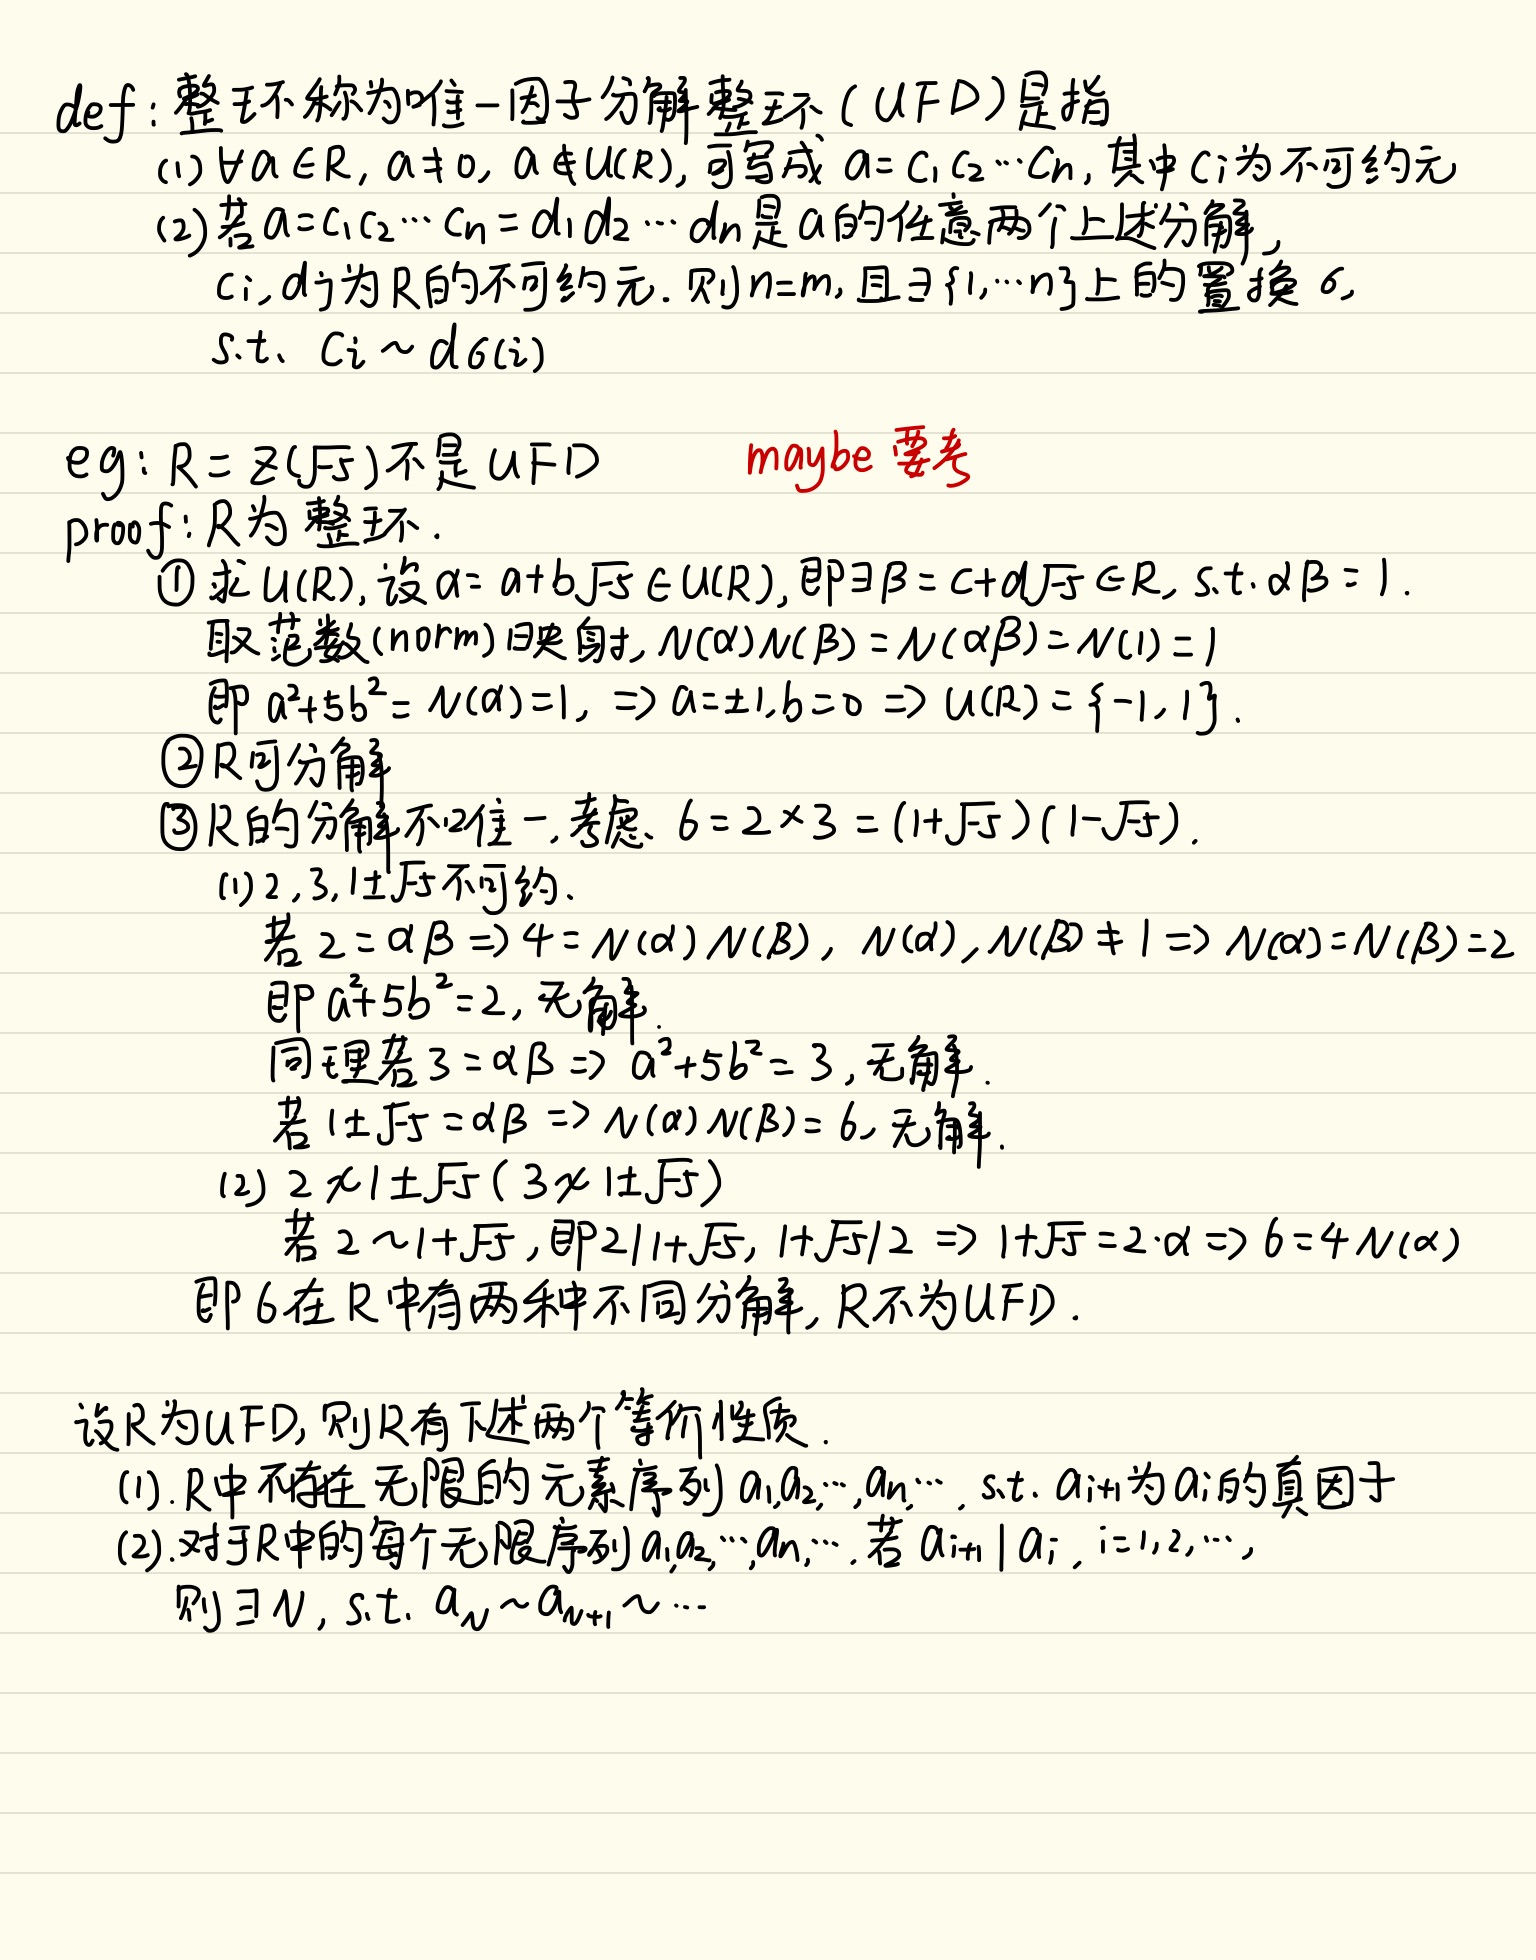 def: 整环称为唯一因子分解整环(UFD)是指
(1) ∀a∈R, a≠0, a∉U(R), 可写成 a=c₁c₂⋯cₙ, 其中cᵢ为不可约元
(2) 若a=c₁c₂⋯cₙ=d₁d₂⋯dₙ是a的任意两个上述分解,
cᵢ, dⱼ为R的不可约元. 则n=m, 且∃{1,⋯n}上的置换σ,
s.t. cᵢ~dσ(i)
eg: R=Z(√-5)不是UFD maybe 要考
proof: R为整环.
① 求U(R), 设α=a+b√-5∈U(R), 即∃β=c+d√-5∈R, s.t. αβ=1.
取范数(norm)映射, N(α)N(β)=N(αβ)=N(1)=1
即 a²+5b²=N(α)=1, ⇒ a=±1, b=0 ⇒ U(R)={-1,1}.
② R可分解
③ R的分解不唯一, 考虑 6=2×3=(1+√-5)(1-√-5).
(1) 2,3,1±√-5不可约.
若 2=αβ ⇒ 4=N(α)N(β), N(α),N(β)≠1 ⇒ N(α)=N(β)=2
即 a²+5b²=2, 无解.
同理若3=αβ ⇒ a²+5b²=3, 无解.
若 1±√-5=αβ ⇒ N(α)N(β)=6, 无解.
(2) 2≁1±√-5 (3≁1±√-5)
若 2~1+√-5, 即2|1+√-5, 1+√-5|2 ⇒ 1+√-5=2·α ⇒ 6=4N(α)
即 6在R中有两种不同分解, R不为UFD.
设R为UFD, 则R有下述两个等价性质.
(1). R中不存在无限的元素序列 a₁,a₂,⋯,aₙ,⋯, s.t. aᵢ₊₁为aᵢ的真因子
(2). 对于R中的每个无限序列a₁,a₂,⋯,aₙ,⋯. 若 aᵢ₊₁|aᵢ, i=1,2,⋯,
则∃N, s.t. a_N~a_N+1~⋯